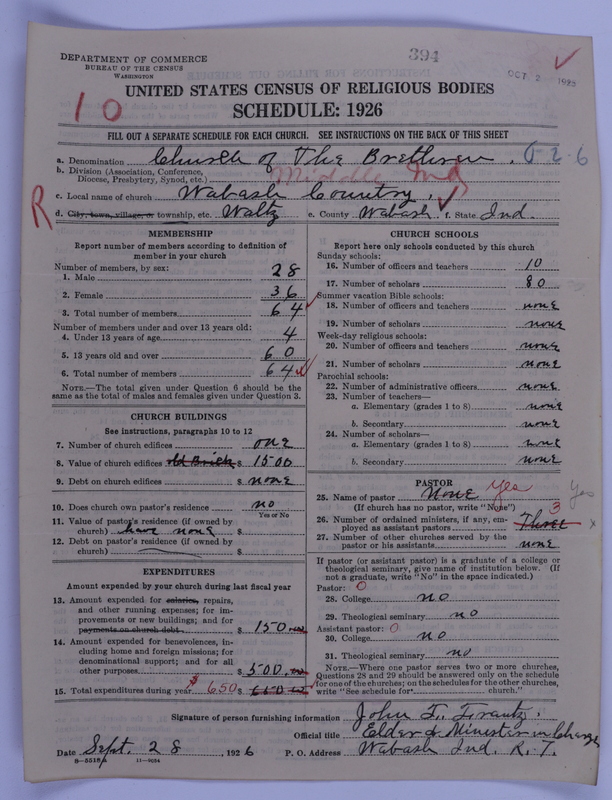 394
DEPARTMENT OF COMMERCE
BUREAU OF THE CENSUS
WASHINGTON
OCT 2 1926
10
UNITED STATES CENSUS OF RELIGIOUS BODIES
SCHEDULE: 1926
FILL OUT A SEPARATE SCHEDULE FOR EACH CHURCH. SEE INSTRUCTIONS ON THE BACK OF THIS SHEET
a. Denomination Church of The Brethren. 0-2-6
b. Division (Association, Conference, Diocese, Presbytery, Synod, etc.) Middle Ind
c. Local name of church Wabash Country.
R
d. City, town, village, or township, etc. Waltz e. County Wabash f. State Ind.
MEMBERSHIP
Report number of members according to definition of member in your church
Number of members, by sex:
1. Male 28
2. Female 36
3. Total number of members 64
Number of members under and over 13 years old:
4. Under 13 years of age 4
5. 13 years old and over 60
6. Total number of members 64
NOTE.—The total given under Question 6 should be the same as the total of males and females given under Question 3.
CHURCH BUILDINGS
See instructions, paragraphs 10 to 12
7. Number of church edifices one
8. Value of church edifices old Brick $ 1500
9. Debt on church edifices $ none
10. Does church own pastor's residence? no
Yes or No
11. Value of pastor's residence (if owned by church) have none $
12. Debt on pastor's residence (if owned by church) $
EXPENDITURES
Amount expended by your church during last fiscal year
13. Amount expended for salaries, repairs, and other running expenses; for improvements or new buildings; and for payments on church debt $ 150.00
14. Amount expended for benevolences, including home and foreign missions; for denominational support; and for all other purposes $ 500.00
15. Total expenditures during year $ 650 $ 650.00
CHURCH SCHOOLS
Report here only schools conducted by this church
Sunday schools:
16. Number of officers and teachers 10
17. Number of scholars 80
Summer vacation Bible schools:
18. Number of officers and teachers none
19. Number of scholars none
Week-day religious schools:
20. Number of officers and teachers none
21. Number of scholars none
Parochial schools:
22. Number of administrative officers none
23. Number of teachers—
a. Elementary (grades 1 to 8) none
b. Secondary none
24. Number of scholars—
a. Elementary (grades 1 to 8) none
b. Secondary none
PASTOR
25. Name of pastor None Yes Yes
(If church has no pastor, write "None")
26. Number of ordained ministers, if any, employed as assistant pastors Three 3 x
27. Number of other churches served by the pastor or his assistants none
If pastor (or assistant pastor) is a graduate of a college or theological seminary, give name of institution below. (If not a graduate, write "No" in the space indicated.)
Pastor: 0
28. College no
29. Theological seminary no
Assistant pastor: 0
30. College no
31. Theological seminary no
NOTE.—Where one pastor serves two or more churches, Questions 28 and 29 should be answered only on the schedule for one of the churches; on the schedules for the other churches, write "See schedule for church."
Signature of person furnishing information John L. Frantz.
Official title Elder & Minister in Charge
Date Sept. 28, 1926 P. O. Address Wabash Ind. R. 7.
8-5518a 11-9054